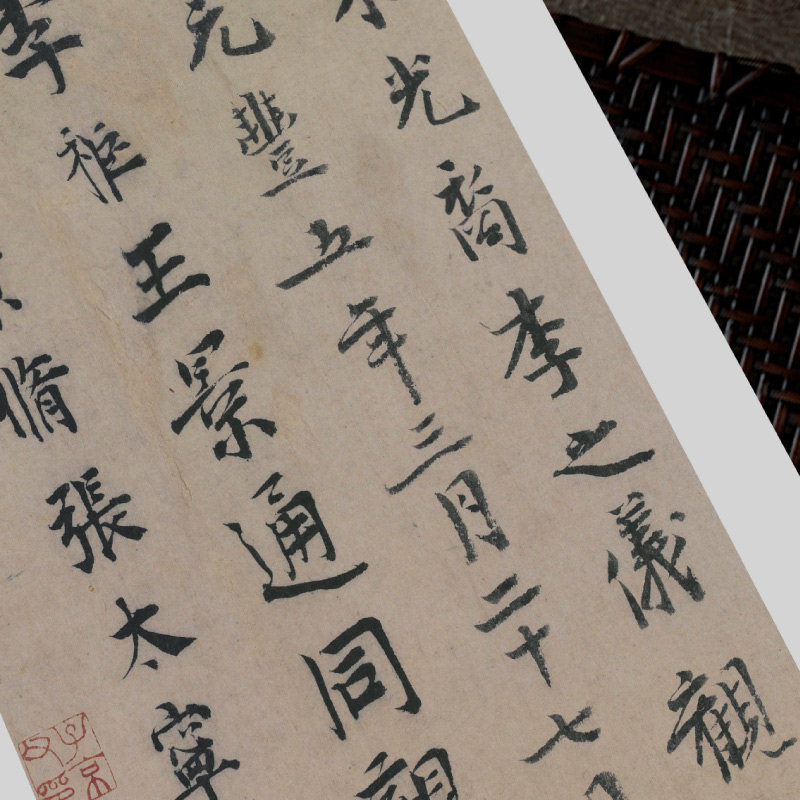 光裔李之儀觀
元豐五年三月二十七日
李秬王景通同觀
脩張太寧